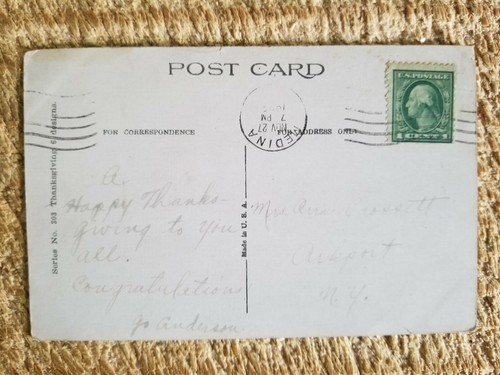 POST CARD
Series No. 303 Thanksgiving 6 designs.
FOR CORRESPONDENCE
FOR ADDRESS ONLY
Made in U.S.A.
U.S. POSTAGE
1 CENT 1
MEDINA
NOV 27
7 PM
A
Happy Thanks-
giving to you
all.
Congratulations
Jo Anderson
Mrs Crossett
Arkport
N.Y.